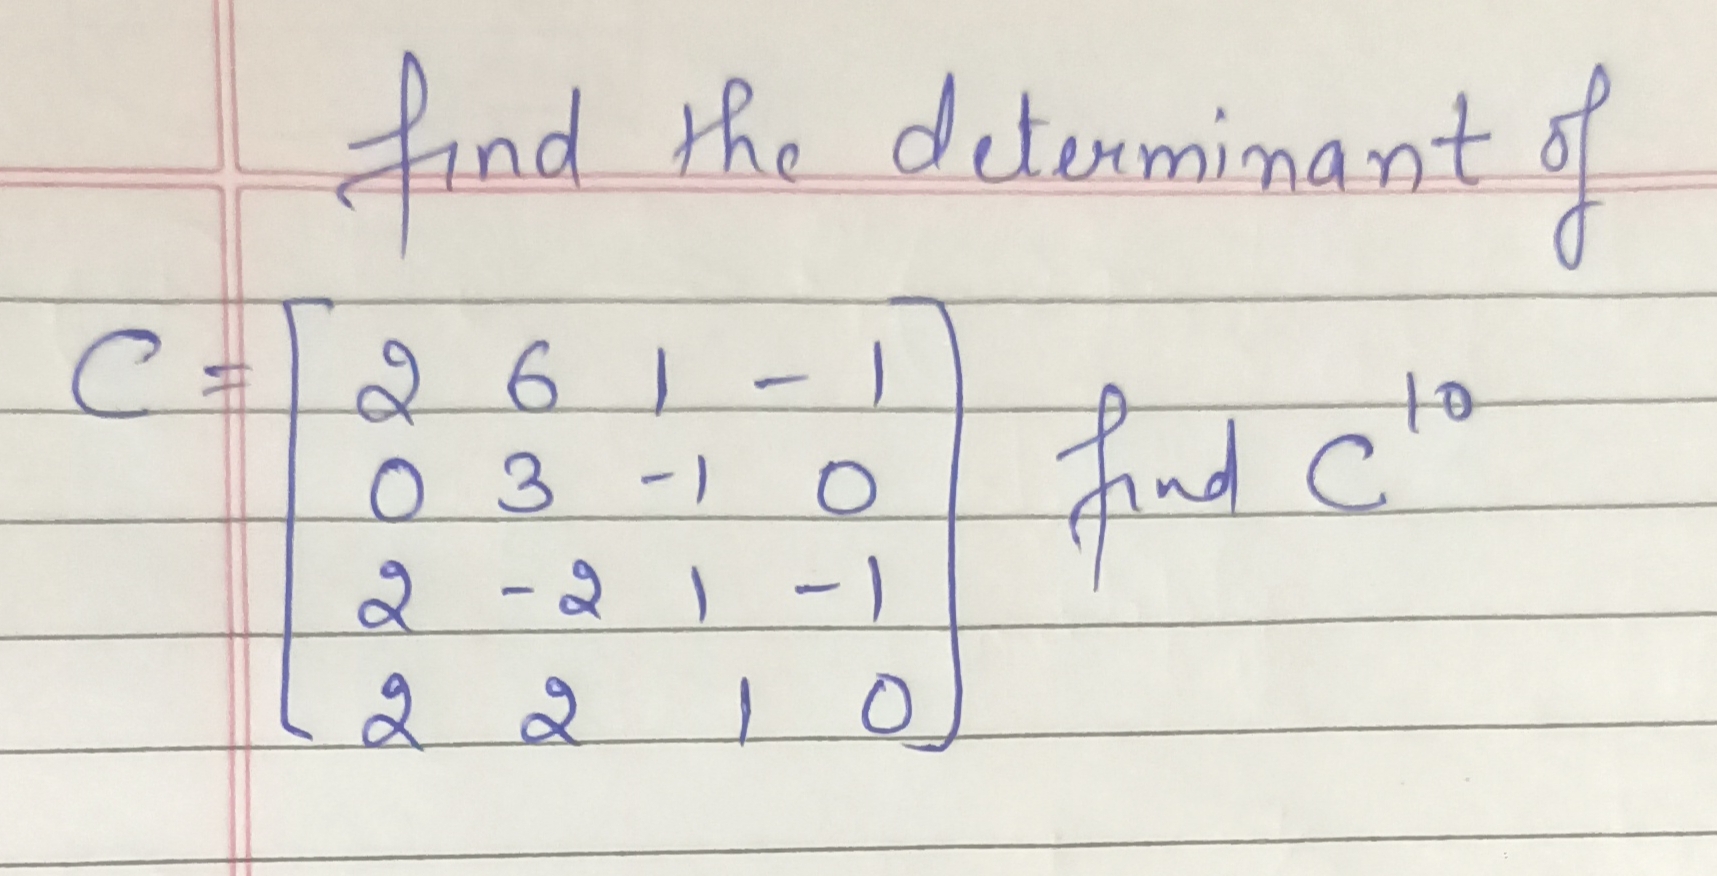 find the determinant of
C = [ 2 6 1 - 1
0 3 -1 0 find C¹⁰
2 - 2 1 -1
2 2 1 0 ]